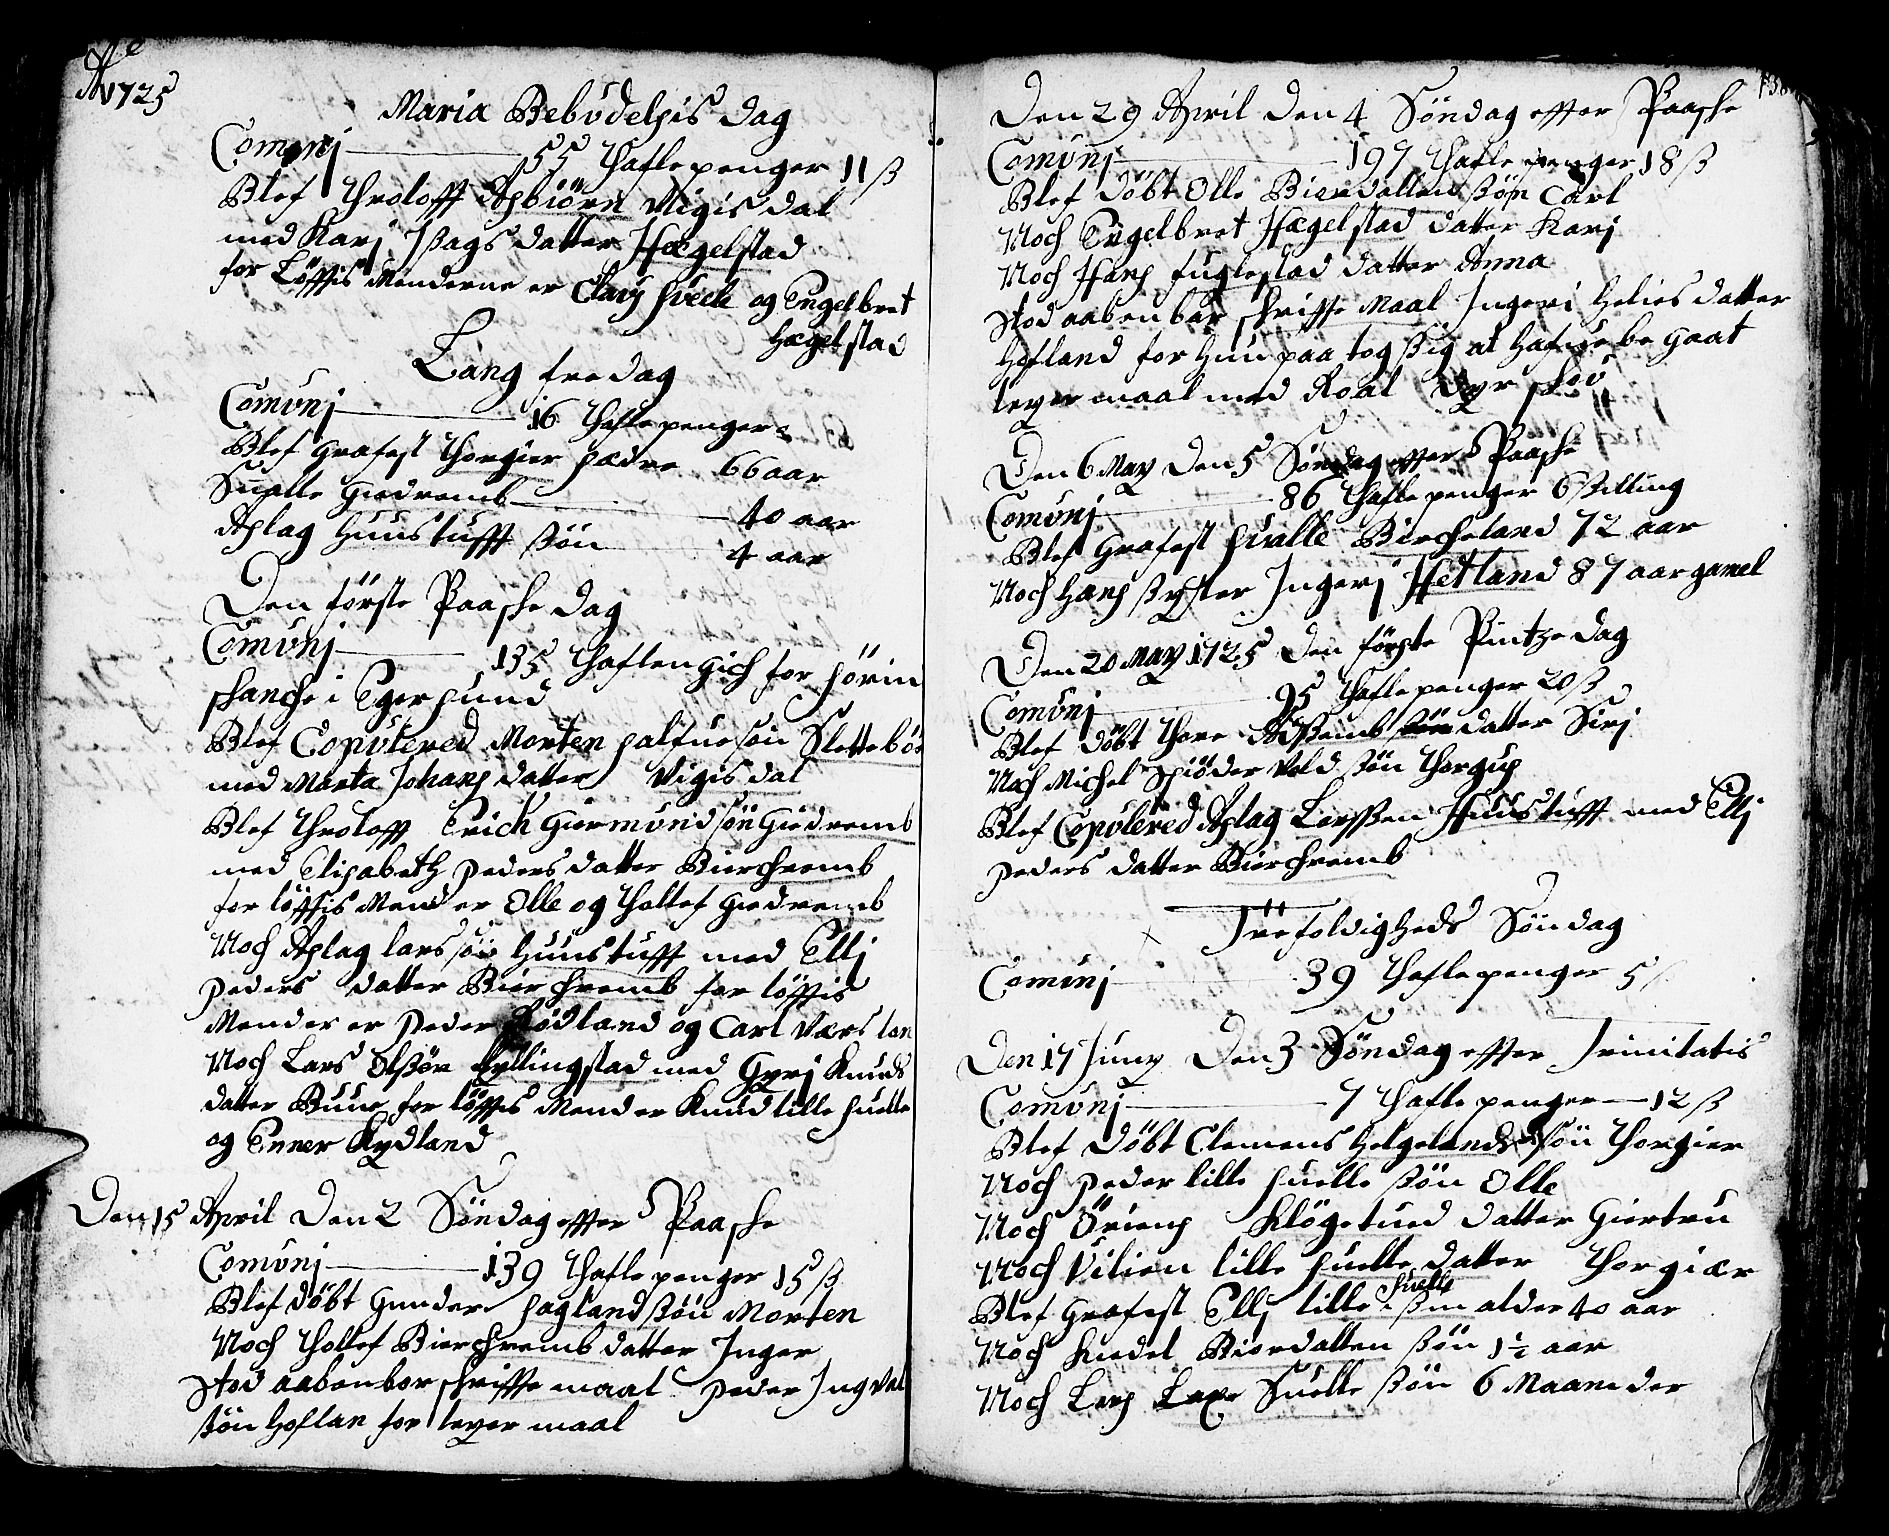 Ao 1725
Maria Bebudelsis dag
Comunj 55 Tafle penger 11 ß
Blef Trolofft Asbiörn Vigisdal
med Karj Isags datter Hægelstad
for Löfftis Menderne er Clavs Hvek og Engelbret
Hægelstad
Lang fredag
Comunj 16 Taflepenger
Blef grafest Thorgier sædre 66 aar
Siealle giedremb 40 aar
Aslag Huustufft ßøn 4 aar
Den förste Paaske dag
Comunj 135 Taflen gich for förin
skanche i Egersund
Blef Copulered Morten salfuesøn Slettebö
med Marta Johans datter Vigisdal
Blef Troloff Erich Giermundsøn Giedremb
med Elisabeth Peders datter Bierchremb
for löfftis Mend er Olle og Tollef Giedremb
Noch Aslag larssøn Huustufft med Ellj
Peders datter Bierchremb for löfftis
Mender er Peder Rödland og Carl værslan
Noch Lars Olßøn Eyllingstad med Gyrj Knuds
datter Buue for löfftis Mender Knud lille suelle
og Enner Rydland
Den 15 April Den 2 Söndag effter Paaske
Comunj 139 Tafle penger 15 ß
Blef döbt Gunder Hagland ßøn Morten
Noch Tollef Bierchremb datter Inger
Stod aabenbar skriffte maal Peder Ingval
ßøn Hoflan for leyermaal
Den 29 April Den 4 Söndag effter Paaske
Comunj 197 Tafle penger 18 ß
Blef Döbt Olle Bieredallen ßøn Carl
Noch Engelbret Hægelstad datter Karj
Noch Hans fuglestad datter Anna
Stod aabenbar skriffte Maal Ingeri Helies datter
Hofland for Hun paa tog ßig at Hafue be gaat
leyermaal med Roal Dyrskov
Den 6 May Den 5 Söndag effter Paaske
Comunj 86 Tafle penger 6 skilling
Blef Grafest Sualle Bircheland 72 aar
Noch Hans ßyster Ingerj Hetland 87 aar gamel
Den 20 May 1725 Den förste Pintze dag
Comunj 95 Tafle penger 20 ß
Blef döbt Thore Aßemb datter Sirj
Noch Michel Spöder Vold ßøn Thorgus
Blef Copulered Aslag Larßen Huustufft med Ellj
Peders datter Bierchremb
Trefoldigheds Söndag
Comunj 39 Taflepenger 5 ß
Den 17 Juny Den 3 Söndag effter Trinitatis
Comunj 7 Tafle penger 12 ß
Blef Döbt Clemens Helgelands søn Thorgier
Noch Peder lille suelle ßøn Olle
Noch Öriens Klögetued datter Giertru
Noch Vilien lille suelle datter Thorgiær
Blef Grafest Ellj lille suelle i ßin alder 40 aar
Noch Kiedel Bieredallen ßøn 1½ aar
Noch Lars Laxe Suelle ßøn 6 Maaneder